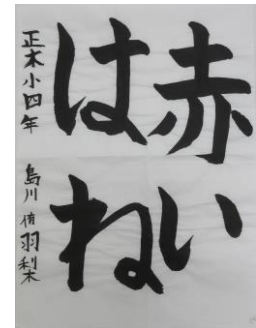 赤い
はね
正木小四年 島川 侑羽梨